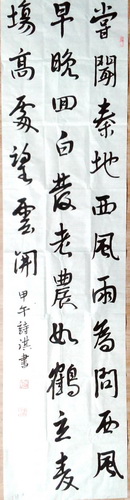 嘗聞秦地西風雨為問西風
早晚回白發老農如鶴立麦
場高處望雲開
甲午詩淇書